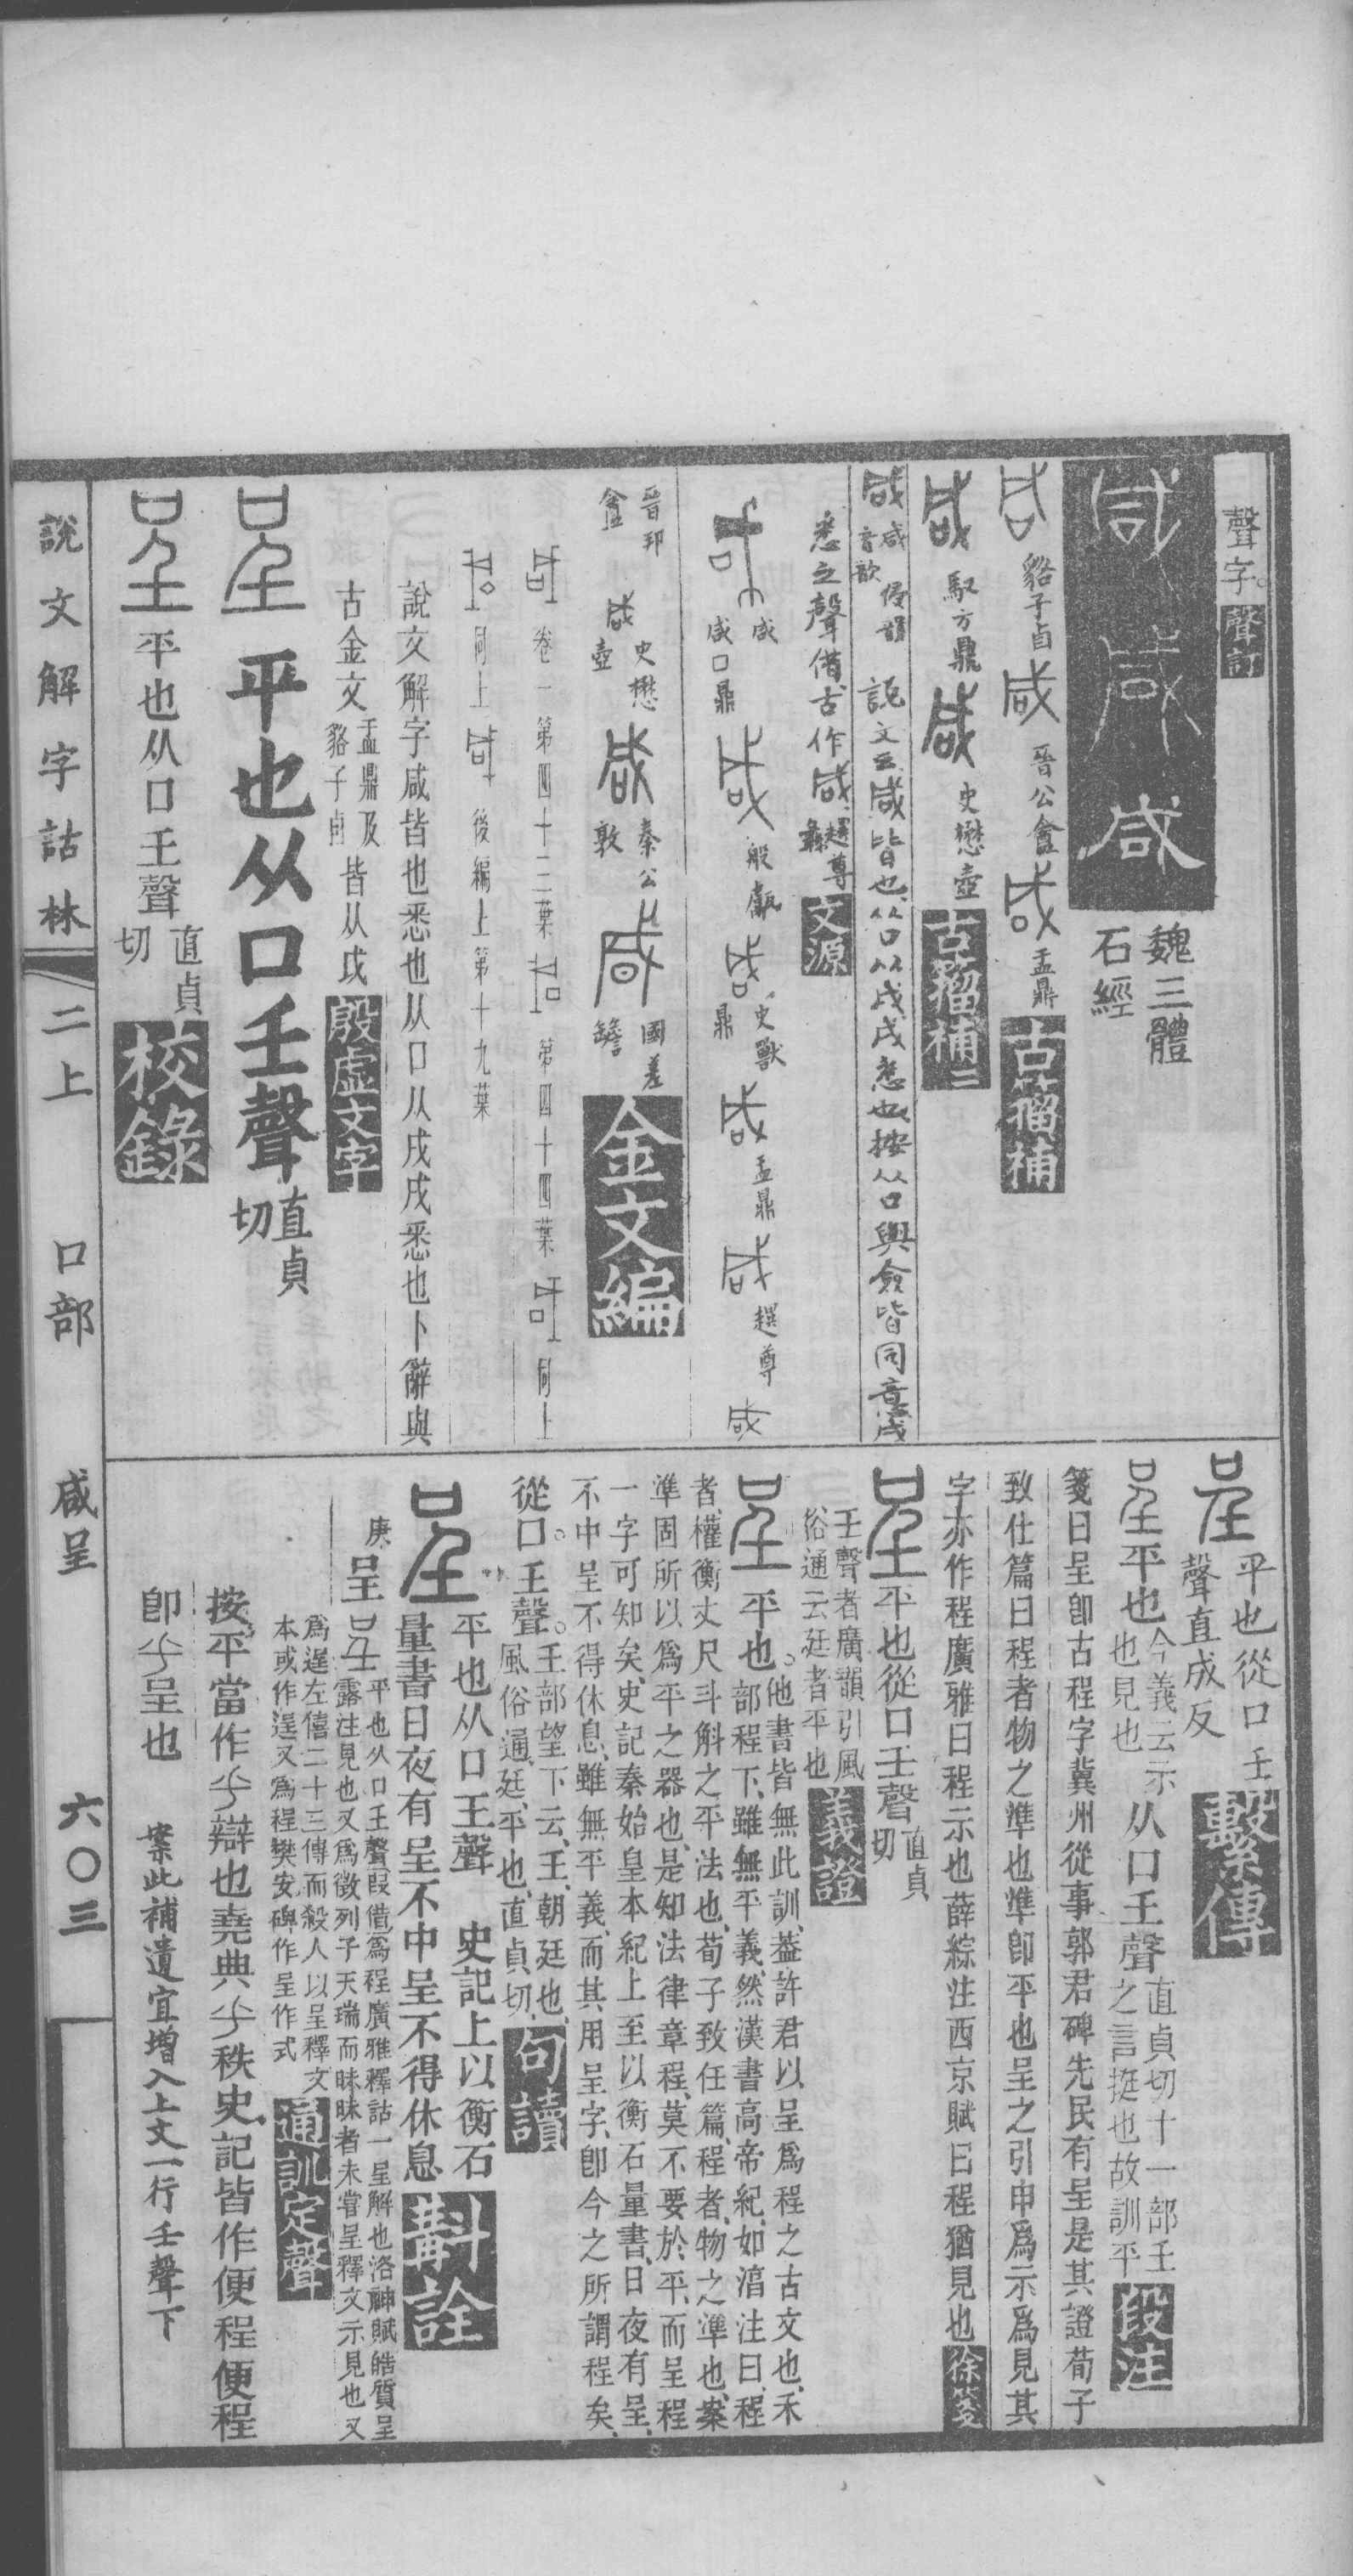 聲字。聲訂
咸 咸 咸 魏三體石經
貉子卣 咸 晉公盦 咸 盂鼎 古籀補
咸 馭方鼎 咸 史懋壺 古籀補二
咸 咸音歆 侵韻 說文云咸皆也从口从戌戌悉也按从口與僉皆同意戌
悉之聲借古作咸 趩尊 彝 文源
咸 咸口鼎 般甗 史獸鼎 盂鼎 趩尊
晉邦盦 史懋壺 秦公敦 國差𦉜 金文編
卷一第四十二葉 第四十四葉 同上
同上 後編上第十九葉
說文解字咸皆也悉也从口从戌戌悉也卜辭與
古金文 盂鼎及貉子卣 皆从戌 殷虛文字
呈 平也从口壬聲 直貞切
呈 平也从口王聲 直貞切 校錄
呈 平也從口壬聲直成反 繫傳
呈 平也 今義云示也見也 从口壬聲 直貞切十一部壬之言挺也故訓平 段注
箋曰呈卽古程字冀州從事郭君碑先民有呈是其證荀子
致仕篇曰程者物之準也準卽平也呈之引申爲示爲見其
字亦作程廣雅曰程示也薛綜注西京賦曰程猶見也 徐箋
呈 平也從口壬聲 直貞切
壬聲者廣韻引風俗通云廷者平也 義證
呈 平也。他書皆無此訓、蓋許君以呈爲程之古文也、禾部程下、雖無平義、然漢書高帝紀、如淳注曰、程
者、權衡丈尺斗斛之平法也、荀子致仕篇、程者、物之準也、案準固所以爲平之器也、是知法律章程、莫不要於平、而呈程
一字可知矣、史記秦始皇本紀、上至以衡石量書、日夜有呈、不中呈不得休息、雖無平義、而其用呈字、卽今之所謂程矣、
從口。王聲。王部望下云、王、朝廷也、風俗通、廷、平也、直貞切、 句讀
呈 平也从口王聲 史記上以衡石量書日夜有呈不中呈不得休息 斠詮
庚 呈 平也从口王聲叚借爲程廣雅釋詁一呈解也洛神賦皓質呈露注見也又爲徵列子天瑞而昧昧者未嘗呈釋文示見也又
爲逞左僖二十三傳而殺人以呈釋文本或作逞又爲程樊安碑作呈作式 通訓定聲
按、平當作釆辯也堯典釆秩史記皆作便程便程
卽釆呈也 案此補遺宜增入上文一行壬聲下
說文解字詁林 二上 口部 咸呈 六〇三